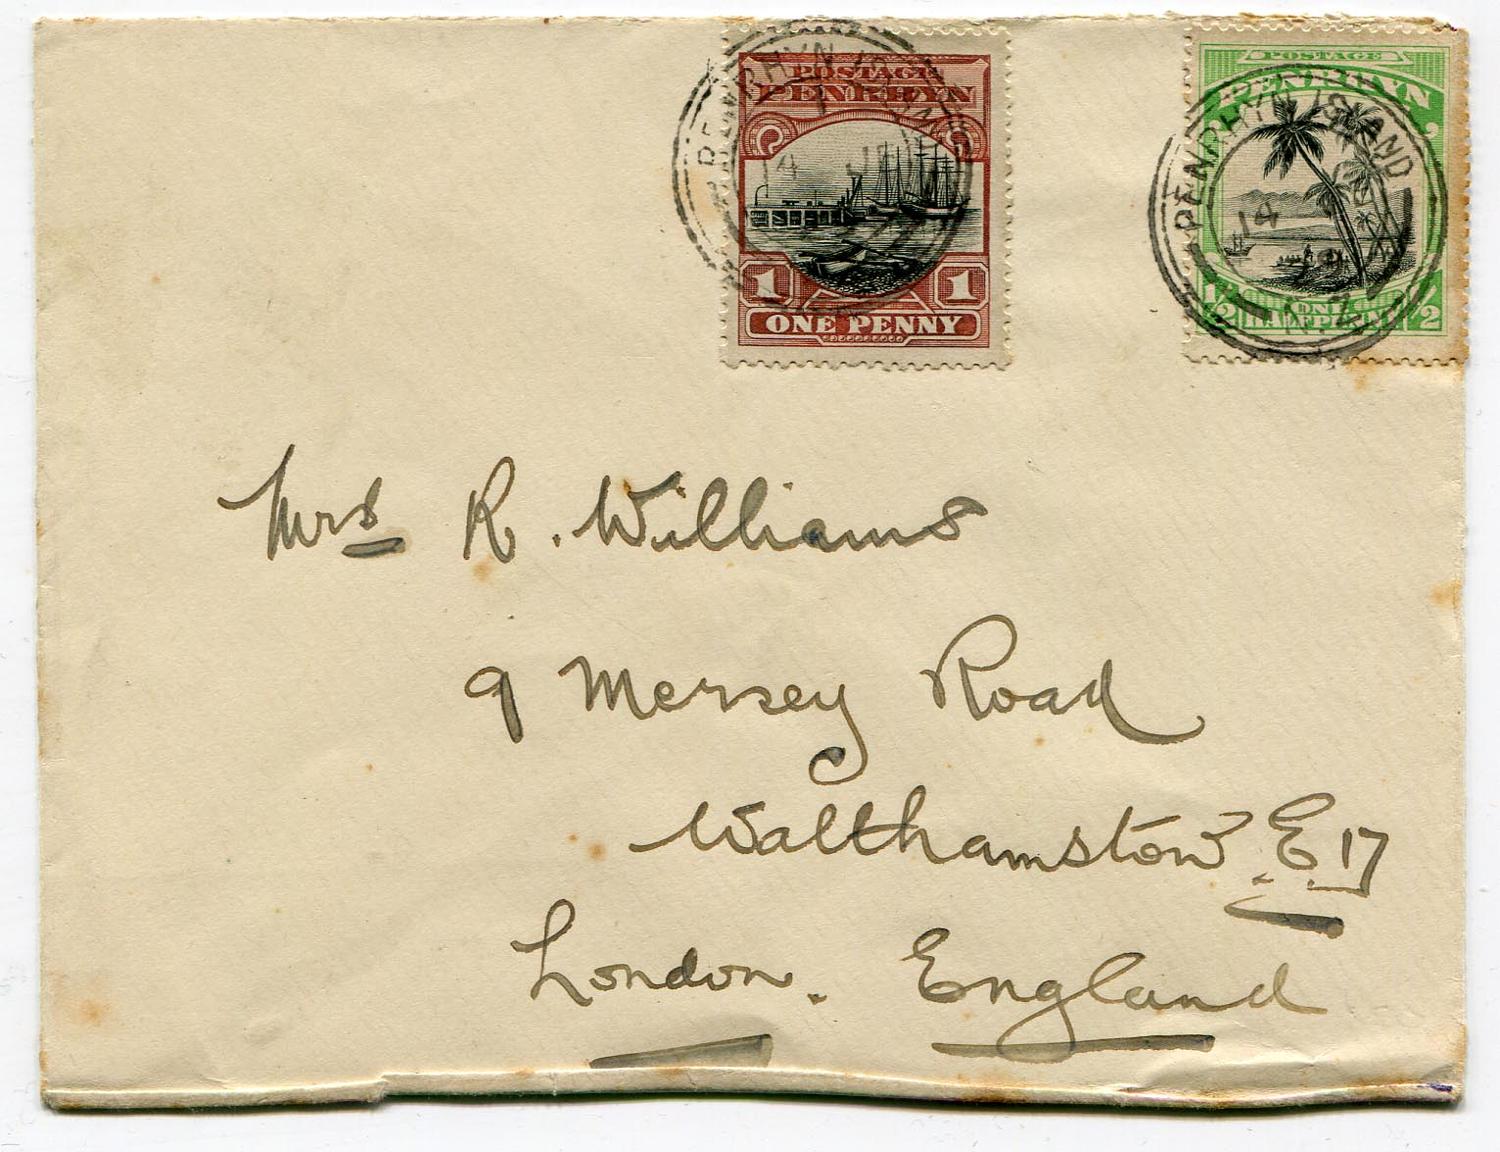 POSTAGE
PENRHYN
1 1
ONE PENNY
PENRHYN ISLAND
14
POSTAGE
PENRHYN
1/2 ONE 1/2
HALFPENNY
PENRHYN ISLAND
14
N.Z.
Mrs R. Williams
9 Mersey Road
Walthamstow. E.17
London. England